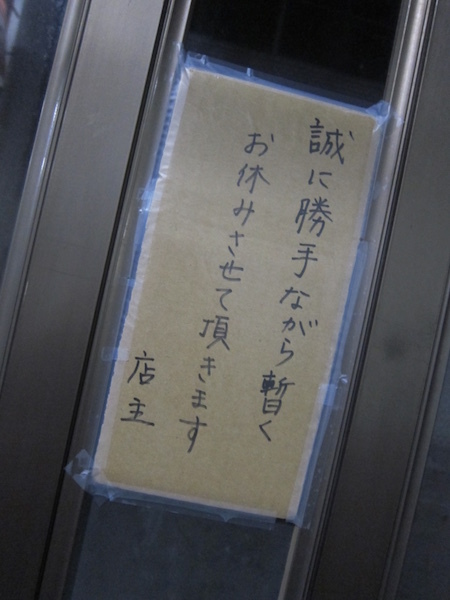 誠に勝手ながら暫く
お休みさせて頂きます
店主